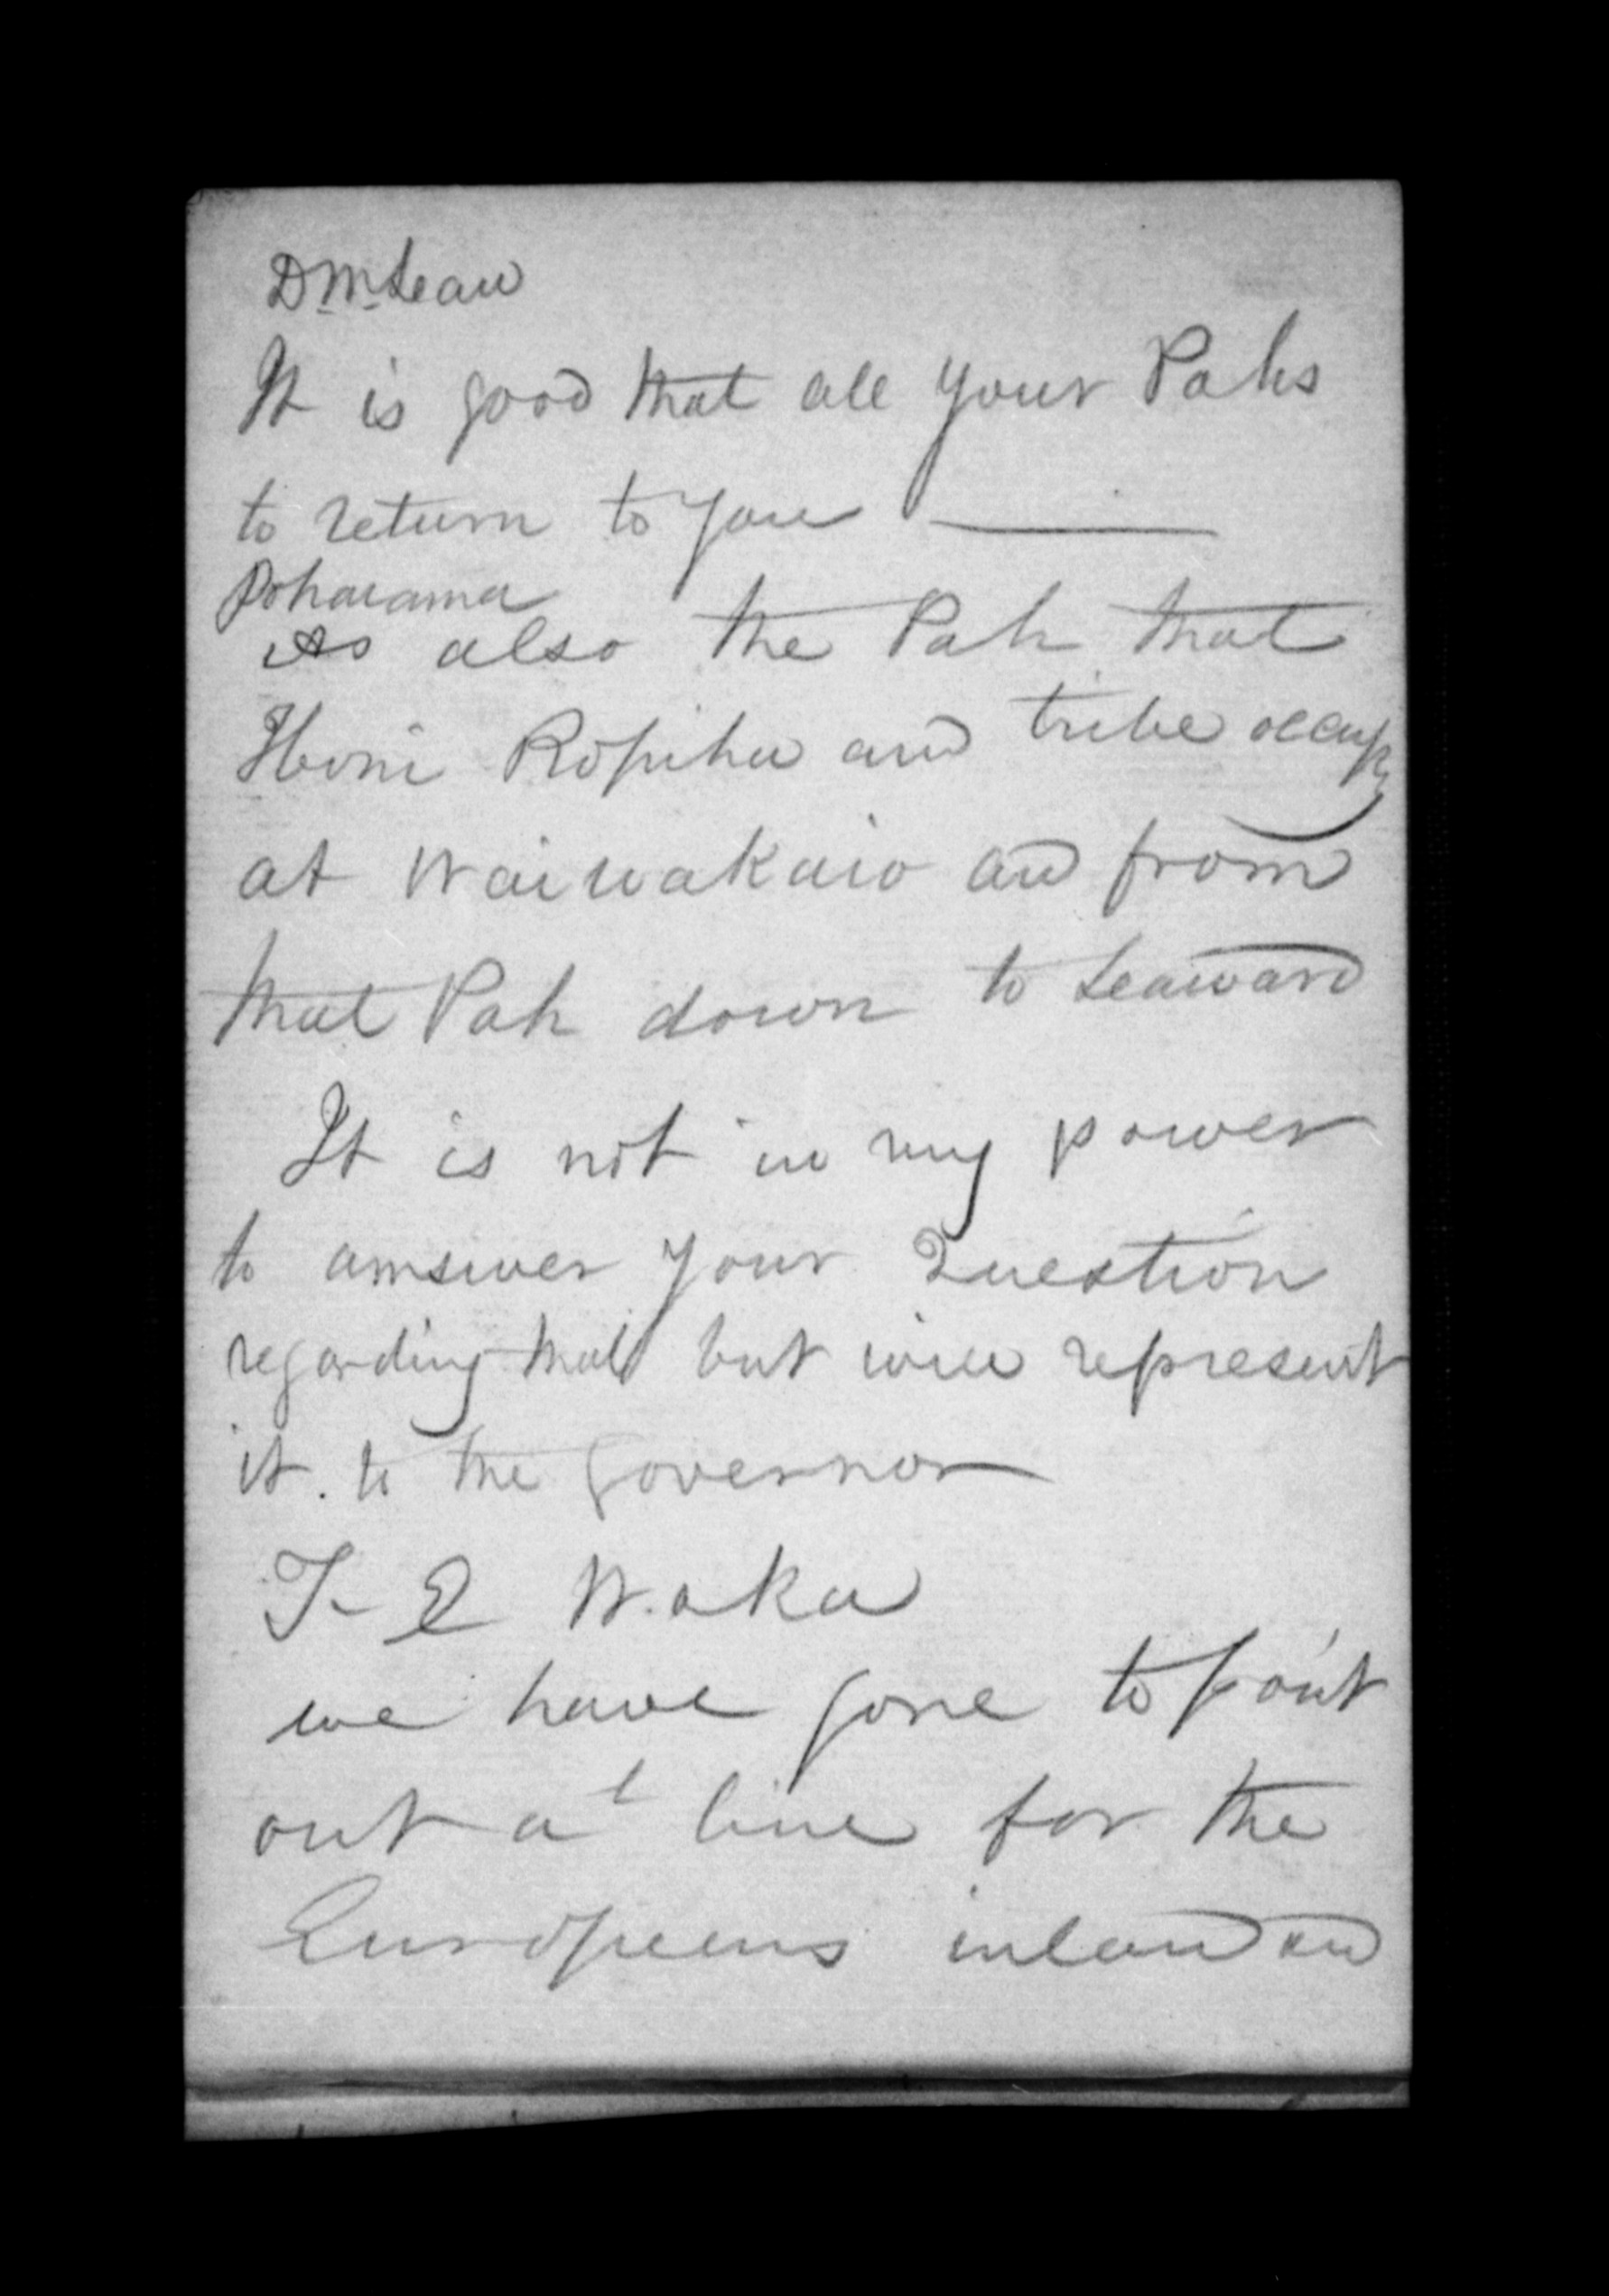 D McLean
It is good that all your Pahs
to return to you ———
Poharama
As also the Pah that
Honi Ropiha and tribe occupy
at Waiwakaio and from
that Pah down to seaward
It is not in my power
to amswer your Question
regarding that but will represent
it. to the Governor
T- E Waka
we have gone to point
out a line for the
Europeens inland and